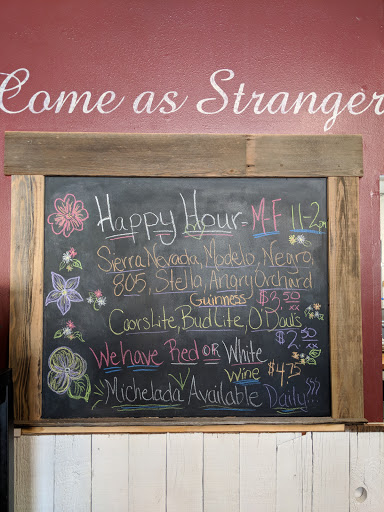 Come as Stranger
Happy Hour- M-F 11-2pm
Sierra Nevada, Modelo, Negro,
805, Stella, Angry Orchard
Guinness $3.50
Coors Lite, Bud Lite, O'Douls
$2.50
We have Red OR White
Wine $4.75
Michelada Available Daily!!!